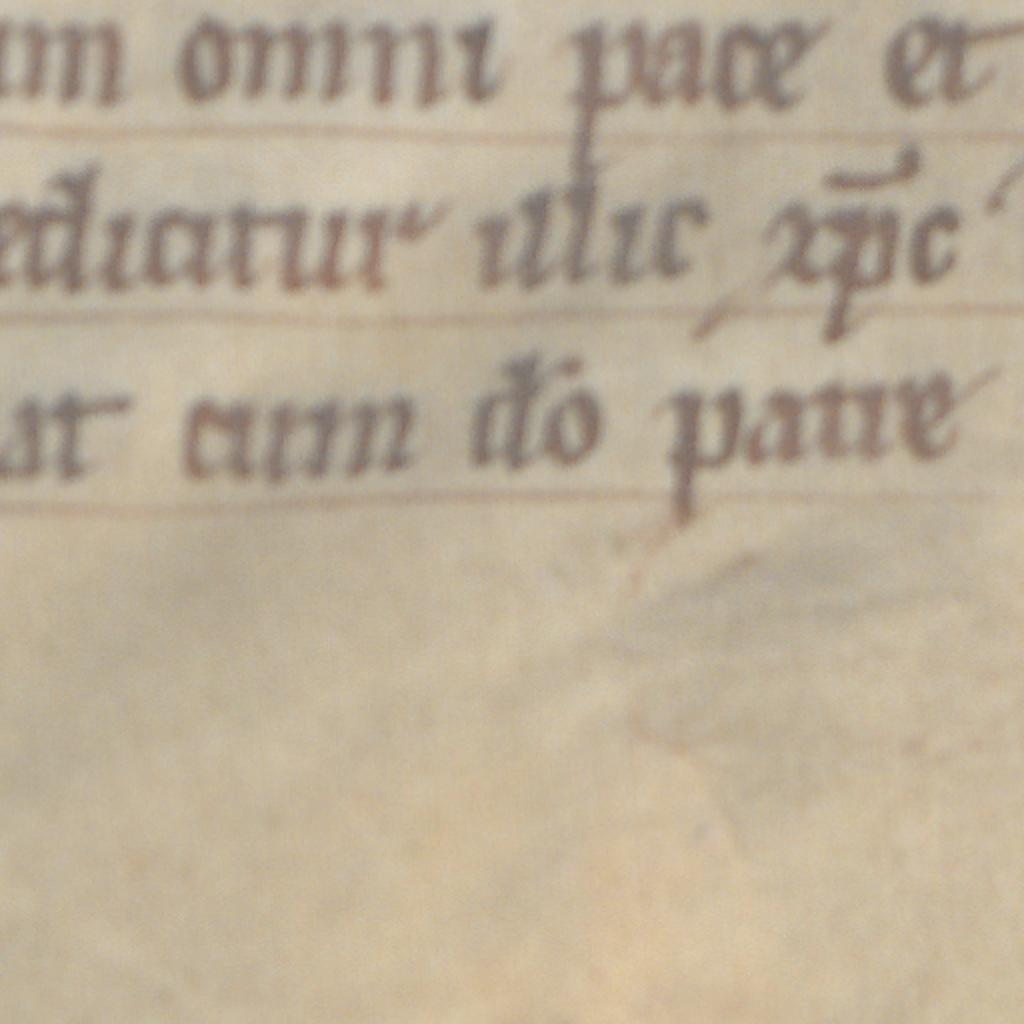 um omni pace et
edicatur illic xp̄c
at cum do patre